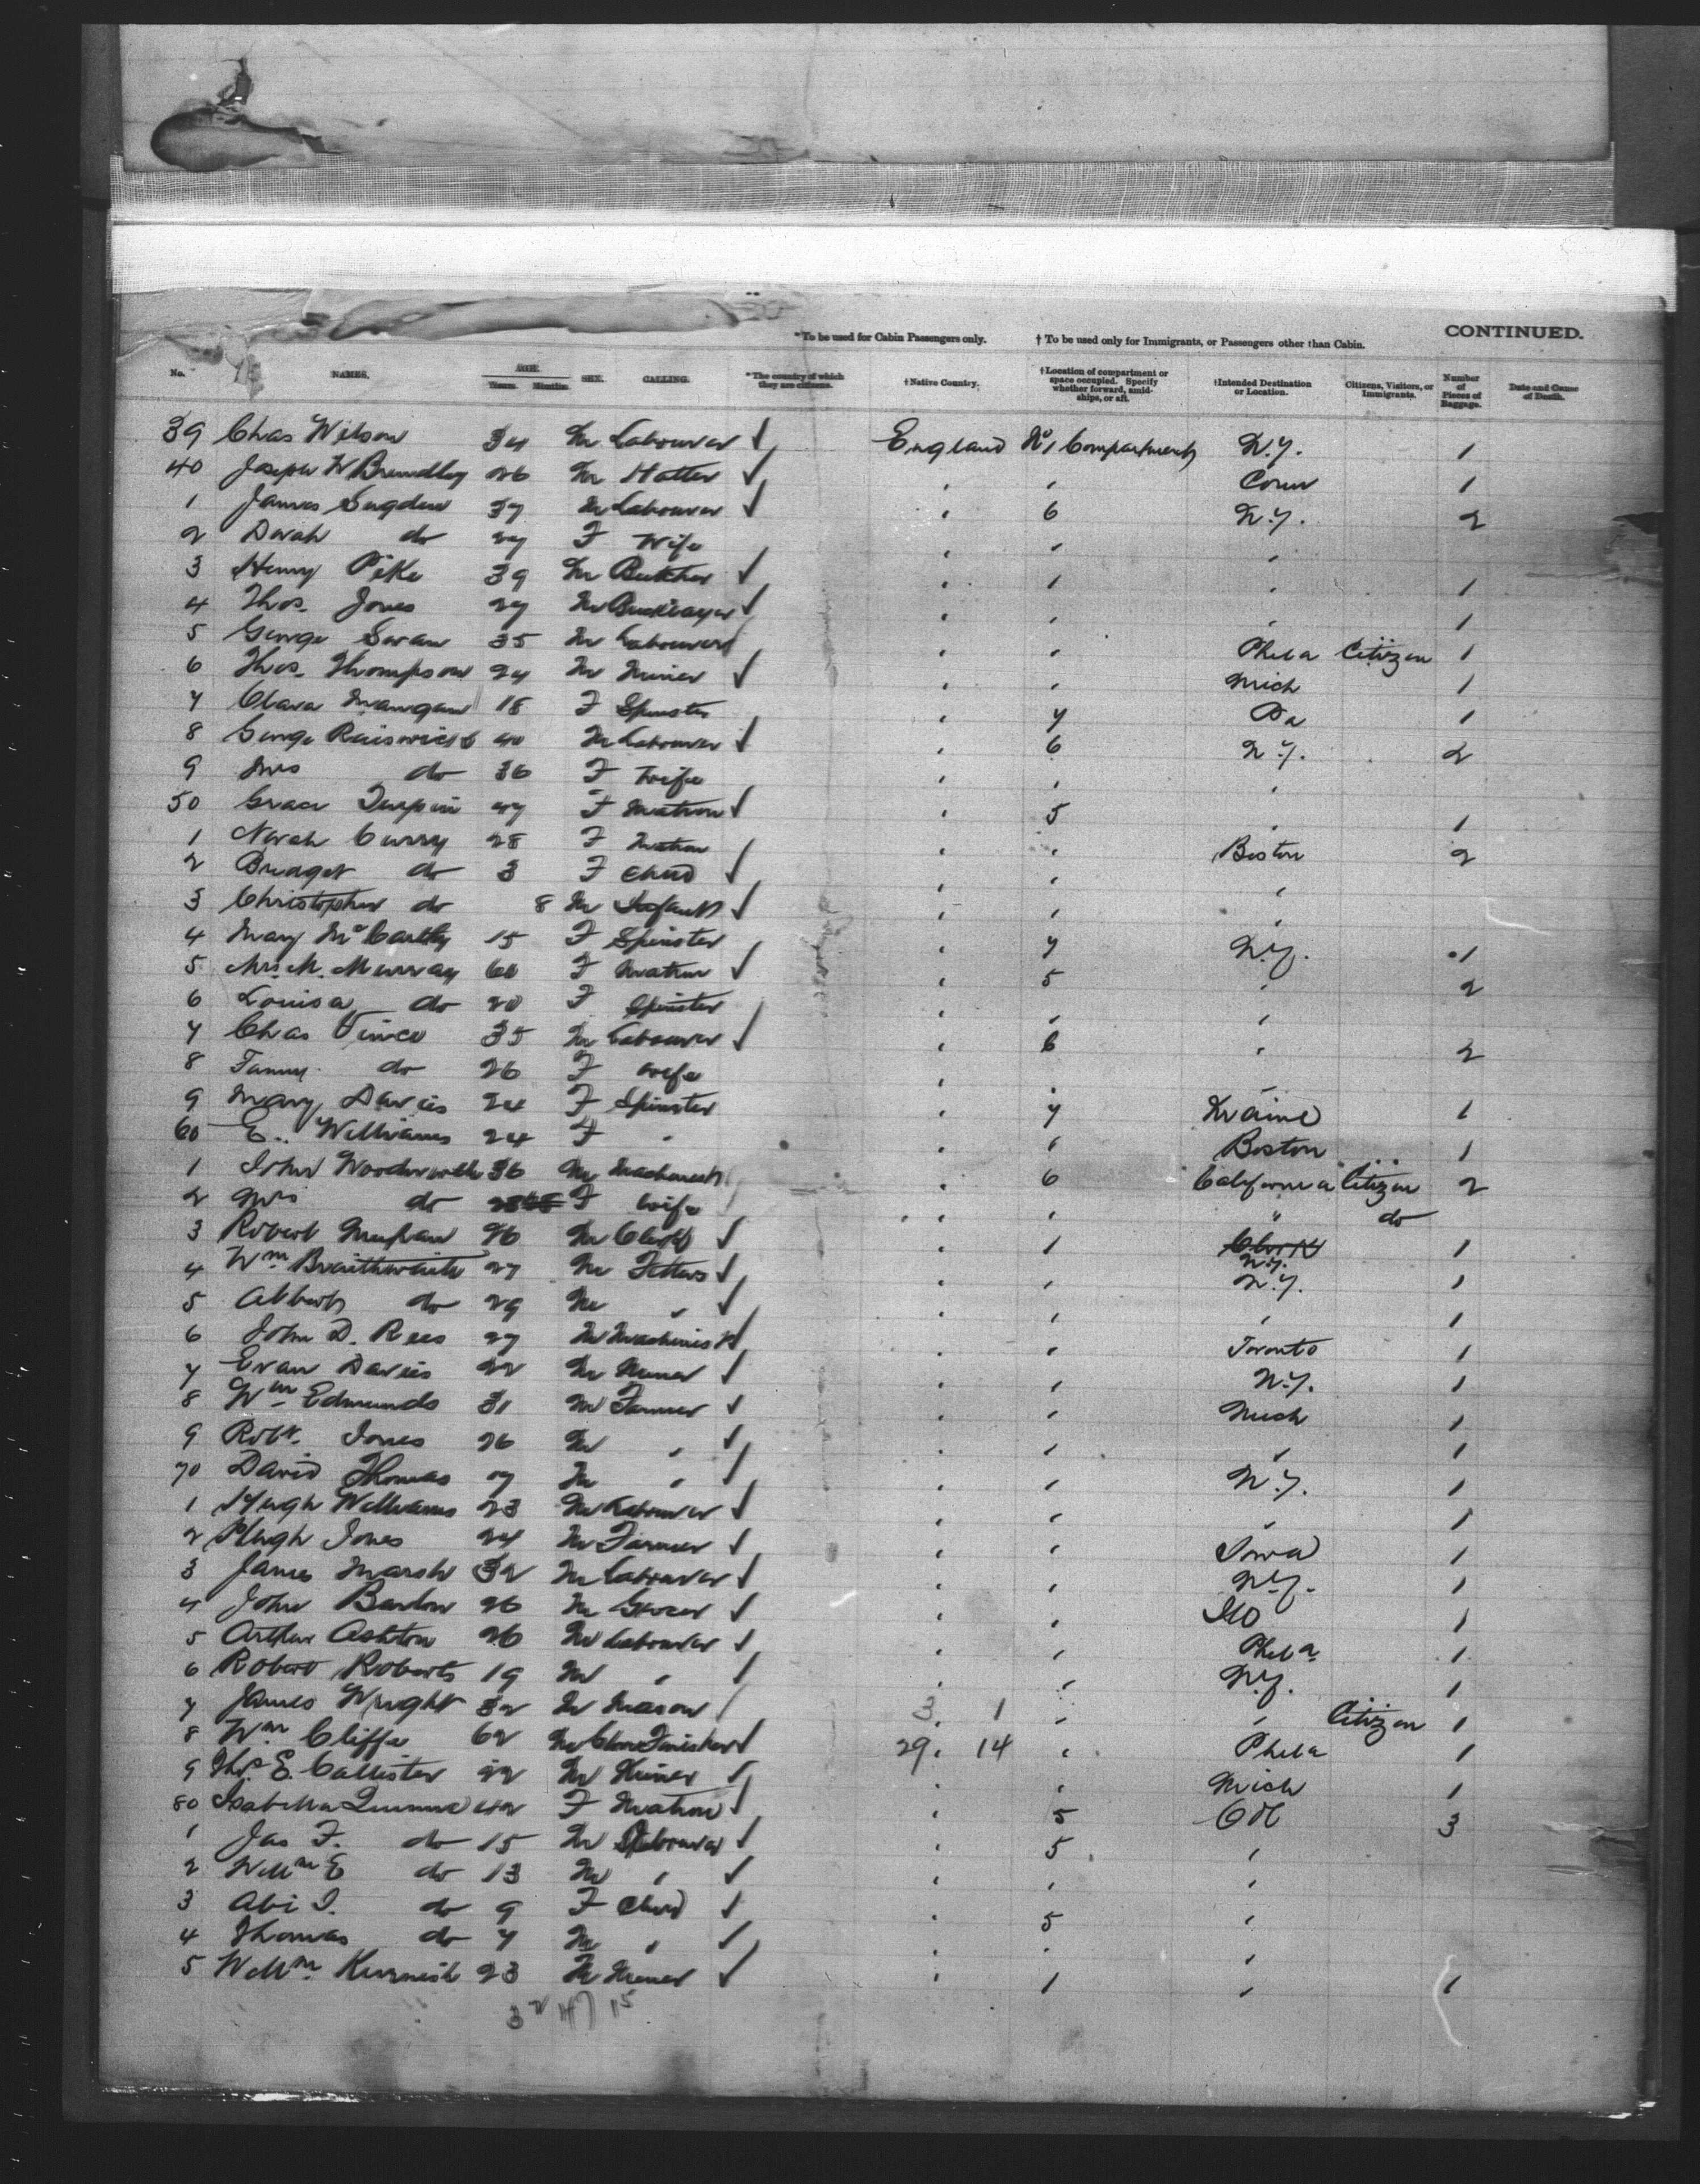 CONTINUED.
*To be used for Cabin Passengers only. † To be used only for Immigrants, or Passengers other than Cabin.
No. NAMES. AGE. Years. Months. SEX. CALLING. *The country of which they are citizens. †Native Country. †Location of compartment or space occupied. Specify whether forward, amidships, or aft. †Intended Destination or Location. Citizens, Visitors, or Immigrants. Number of Pieces of Baggage. Date and Cause of Death.
39 Chas Wilson 34 M Labourer ✓ England No 1 Compartment N.Y. 1
40 Joseph W 26 M Hatter ✓ " " Conn 1
1 James Sugden 37 M Labourer ✓ " 6 N.Y. 2
2 Sarah do F Wife " " "
3 Henry Pike 39 M Butcher ✓ " 1 " 1
4 Thos. Jones 27 M ✓ " " " 1
5 George Swan 35 M Labourer " " Phila Citizen 1
6 Thos. Thompson 24 M Miner ✓ " " Mich 1
7 Clara 18 F Spinster " 7 Pa 1
8 George 40 M Labourer ✓ " 6 N.Y. 2
9 Mrs do 36 F Wife " " "
50 Grace Turpin 47 F Matron ✓ " 5 " 1
1 Norah Curry 28 F Matron " " Boston 2
2 Bridget do 3 F Child ✓ " " "
3 Christopher do 8 M Infant ✓ " " "
4 Mary McCarthy 15 F Spinster " 7 N.Y. 1
5 Mrs. M. Murray 60 F Matron ✓ " 5 " 2
6 Louisa do 20 F Spinster " " "
7 Chas Vince 35 M Labourer ✓ " 6 " 2
8 Fanny do 26 F Wife " " "
9 Mary Davies 24 F Spinster " 7 Maine 1
60 E. Williams 24 F " " " Boston 1
1 John Woodworth 36 M Machinist " 6 California Citizen 2
2 Mrs do F Wife " " " do
3 Robert 26 M Clerk ✓ " 1 N.Y. 1
4 Wm Braithwaite 27 M Fitter ✓ " " N.Y. 1
5 Albert do 29 M " ✓ " " " 1
6 John D. Rees 27 M Machinist " " Toronto 1
7 Evan Davies 22 M Miner ✓ " " N.Y. 1
8 Wm Edmunds 31 M Farmer ✓ " " Mich 1
9 Robt. Jones 26 M " ✓ " " " 1
70 David Thomas M " ✓ " " N.Y. 1
1 Hugh Williams 23 M Labourer ✓ " " " 1
2 Hugh Jones 24 M Farmer ✓ " " Iowa 1
3 James Marsh 32 M Labourer ✓ " " N.Y. 1
4 John Barlow 26 M Grocer ✓ " " Ill 1
5 Arthur Ashton 26 M Labourer ✓ " " Phila 1
6 Robert Roberts 19 M " ✓ " " N.Y. 1
7 James Wright 32 M Mason 3 1 " " Citizen 1
8 Wm Cliffe 62 M Finisher ✓ 29 14 " Phila 1
9 Thos. E. Callister 22 M Miner ✓ " " Mich 1
80 Isabella 42 F Matron ✓ " 5 3
1 Jas F. do 15 M Labourer ✓ " 5 "
2 Willm E do 13 M " ✓ " " "
3 Abi I. do 9 F Child ✓ " 5 "
4 Thomas do 7 M " ✓ " " "
5 Willm 23 M Miner ✓ " 1 " 1